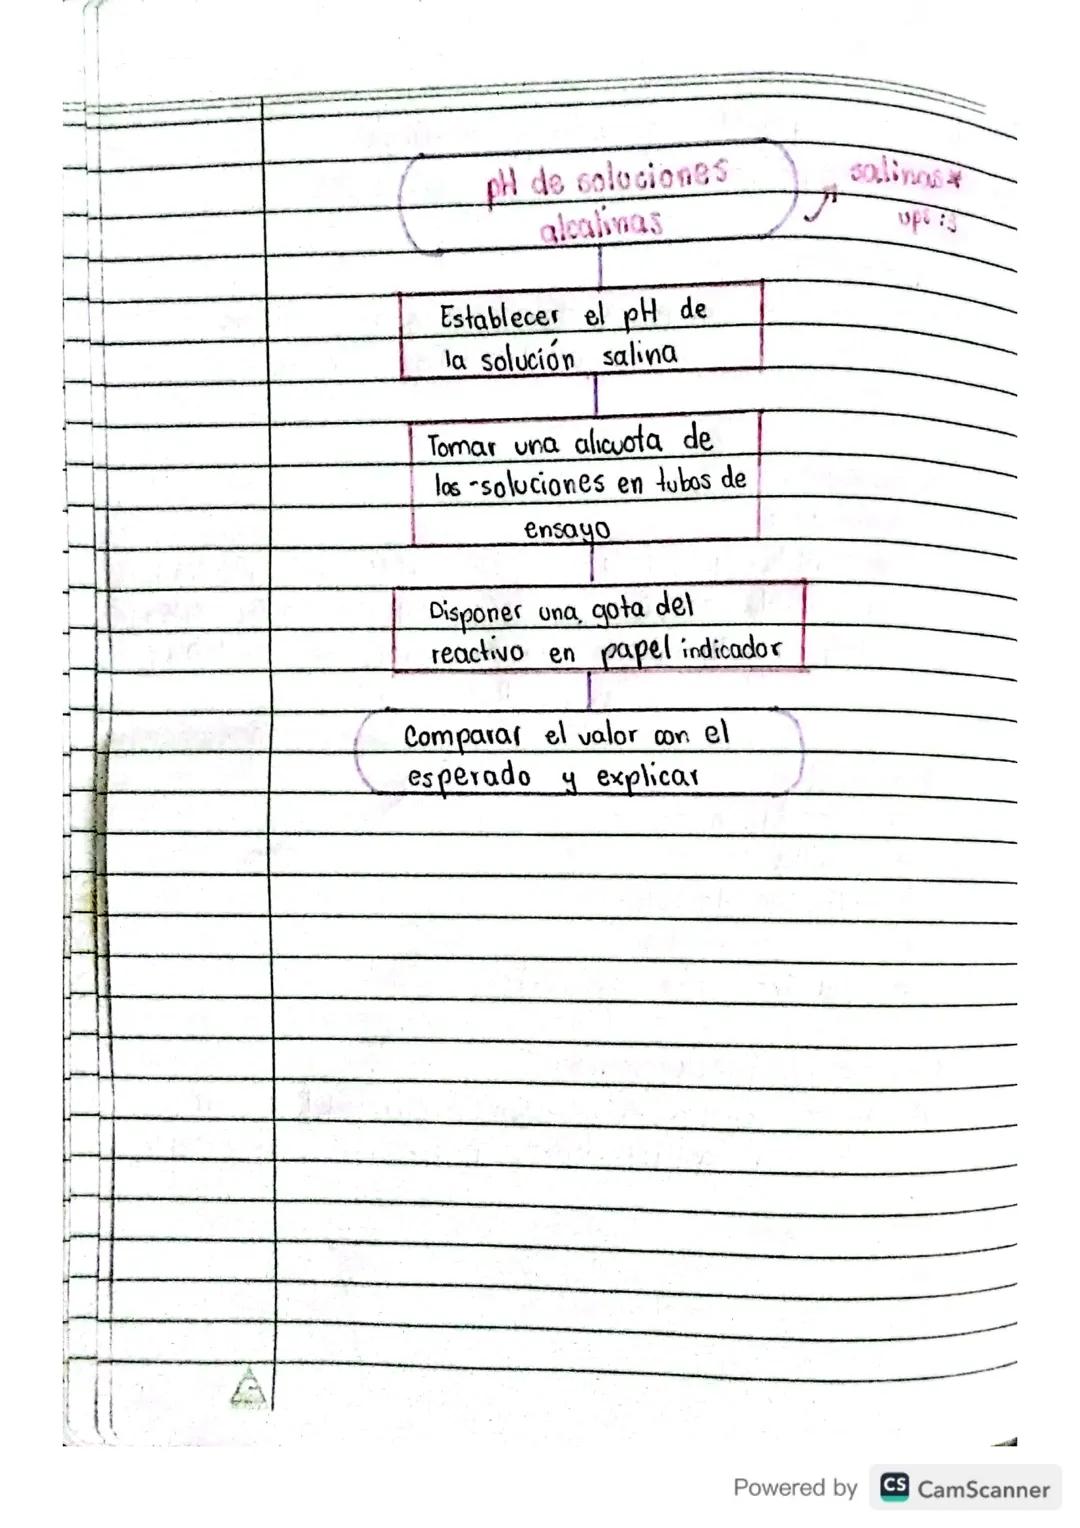 pH de soluciones
alcalinas
salinas*
ups :3
Establecer el pH de
la solución salina
Tomar una alicuota de
las soluciones en tubos de
ensayo
Disponer una gota del
reactivo en papel indicador
Comparar el valor con el
esperado y explicar
Powered by CS CamScanner